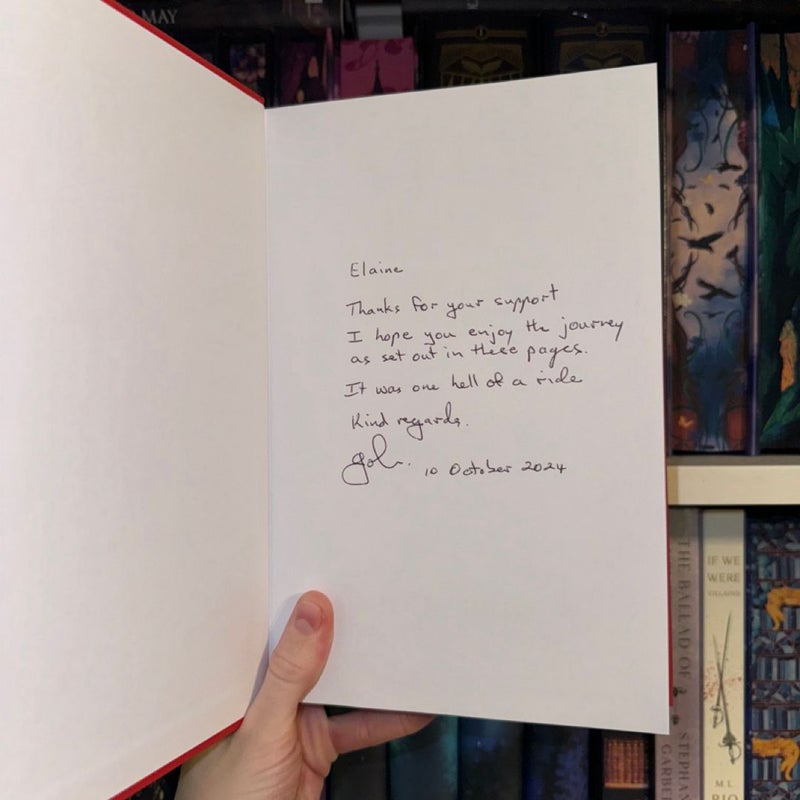 Elaine
Thanks for your support
I hope you enjoy the journey
as set out in these pages.
It was one hell of a ride
Kind regards.
John. 10 October 2024
MAY
1
2
THE BALLAD OF
STEPHAN
GARBE
IF WE
WERE
VILLAINS
M.L.
RIO